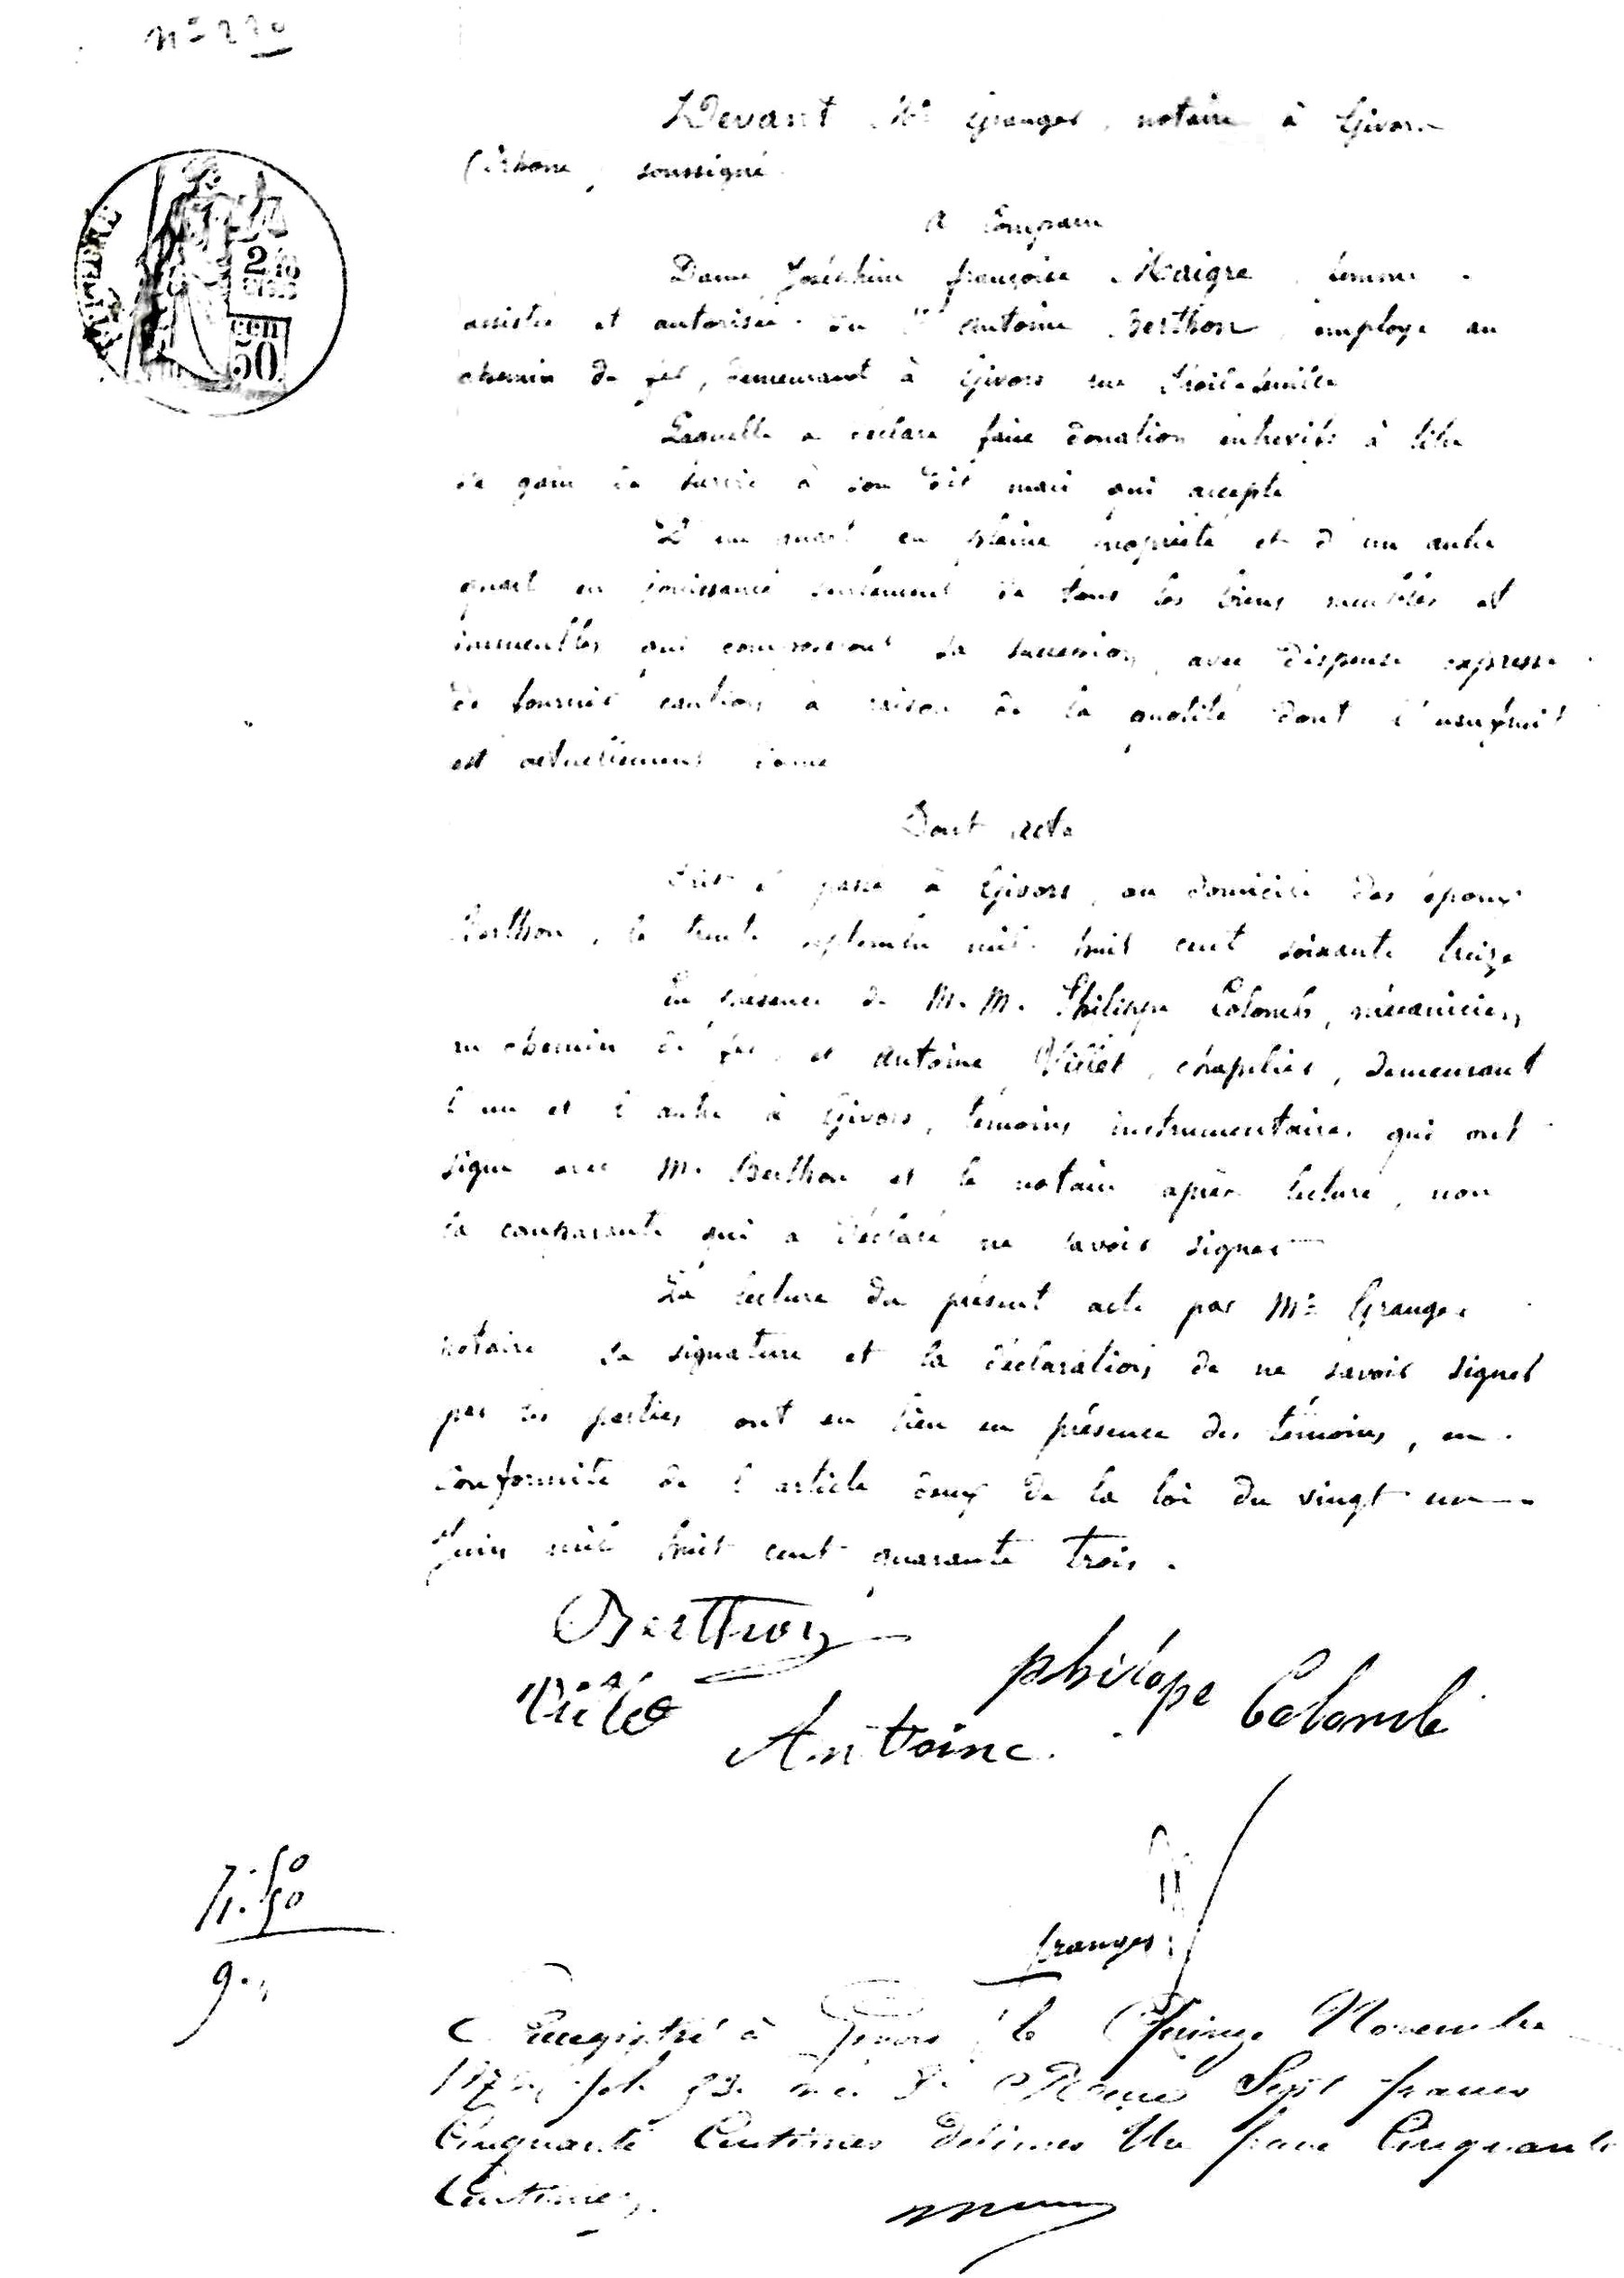 n° 220
Devant Me Granger, notaire à Givors
(Rhône, soussigné.
A Comparu
Dame Joséphine françoise Maigre, femme
assistée et autorisée du Sr Antoine Berthon, employé au
chemin de fer, demeurant à Givors rue
Laquelle a déclaré faire donation entrevifs à titre
de gain de survie à son dit mari qui accepte
D'un quart en pleine propriété et d'un autre
quart en jouissance seulement de tous les biens meubles et
immeubles qui composeront sa succession, avec dispense expresse
de fournir caution à raison de la quotité dont l'usufruit
est actuellement donné
Dont acte
Fait et passé à Givors, au domicile des époux
Berthon, le trente septembre mil huit cent soixante treize
En présence de M. M. Philippe Colomb, mécanicien
au chemin de fer, et Antoine Villet, chapelier, demeurant
l'un et l'autre à Givors, témoins instrumentaires qui ont
signé avec M. Berthon et le notaire après lecture, non
la comparante qui a déclaré ne savoir signer
La lecture du présent acte par Me Granger
notaire la signature et la déclaration de ne savoir signer
par les parties ont eu lieu en présence des témoins, en
conformité de l'article deux de la loi du vingt un
Juin mil huit cent quarante trois.
Berthon
philope Colomb
Antoine.
7.50
1.50
9.,
Granger
Enregistré à Givors le Quinze Novembre
Reçu Sept francs
Cinquante Centimes décimes Un franc Cinquante
Centimes.